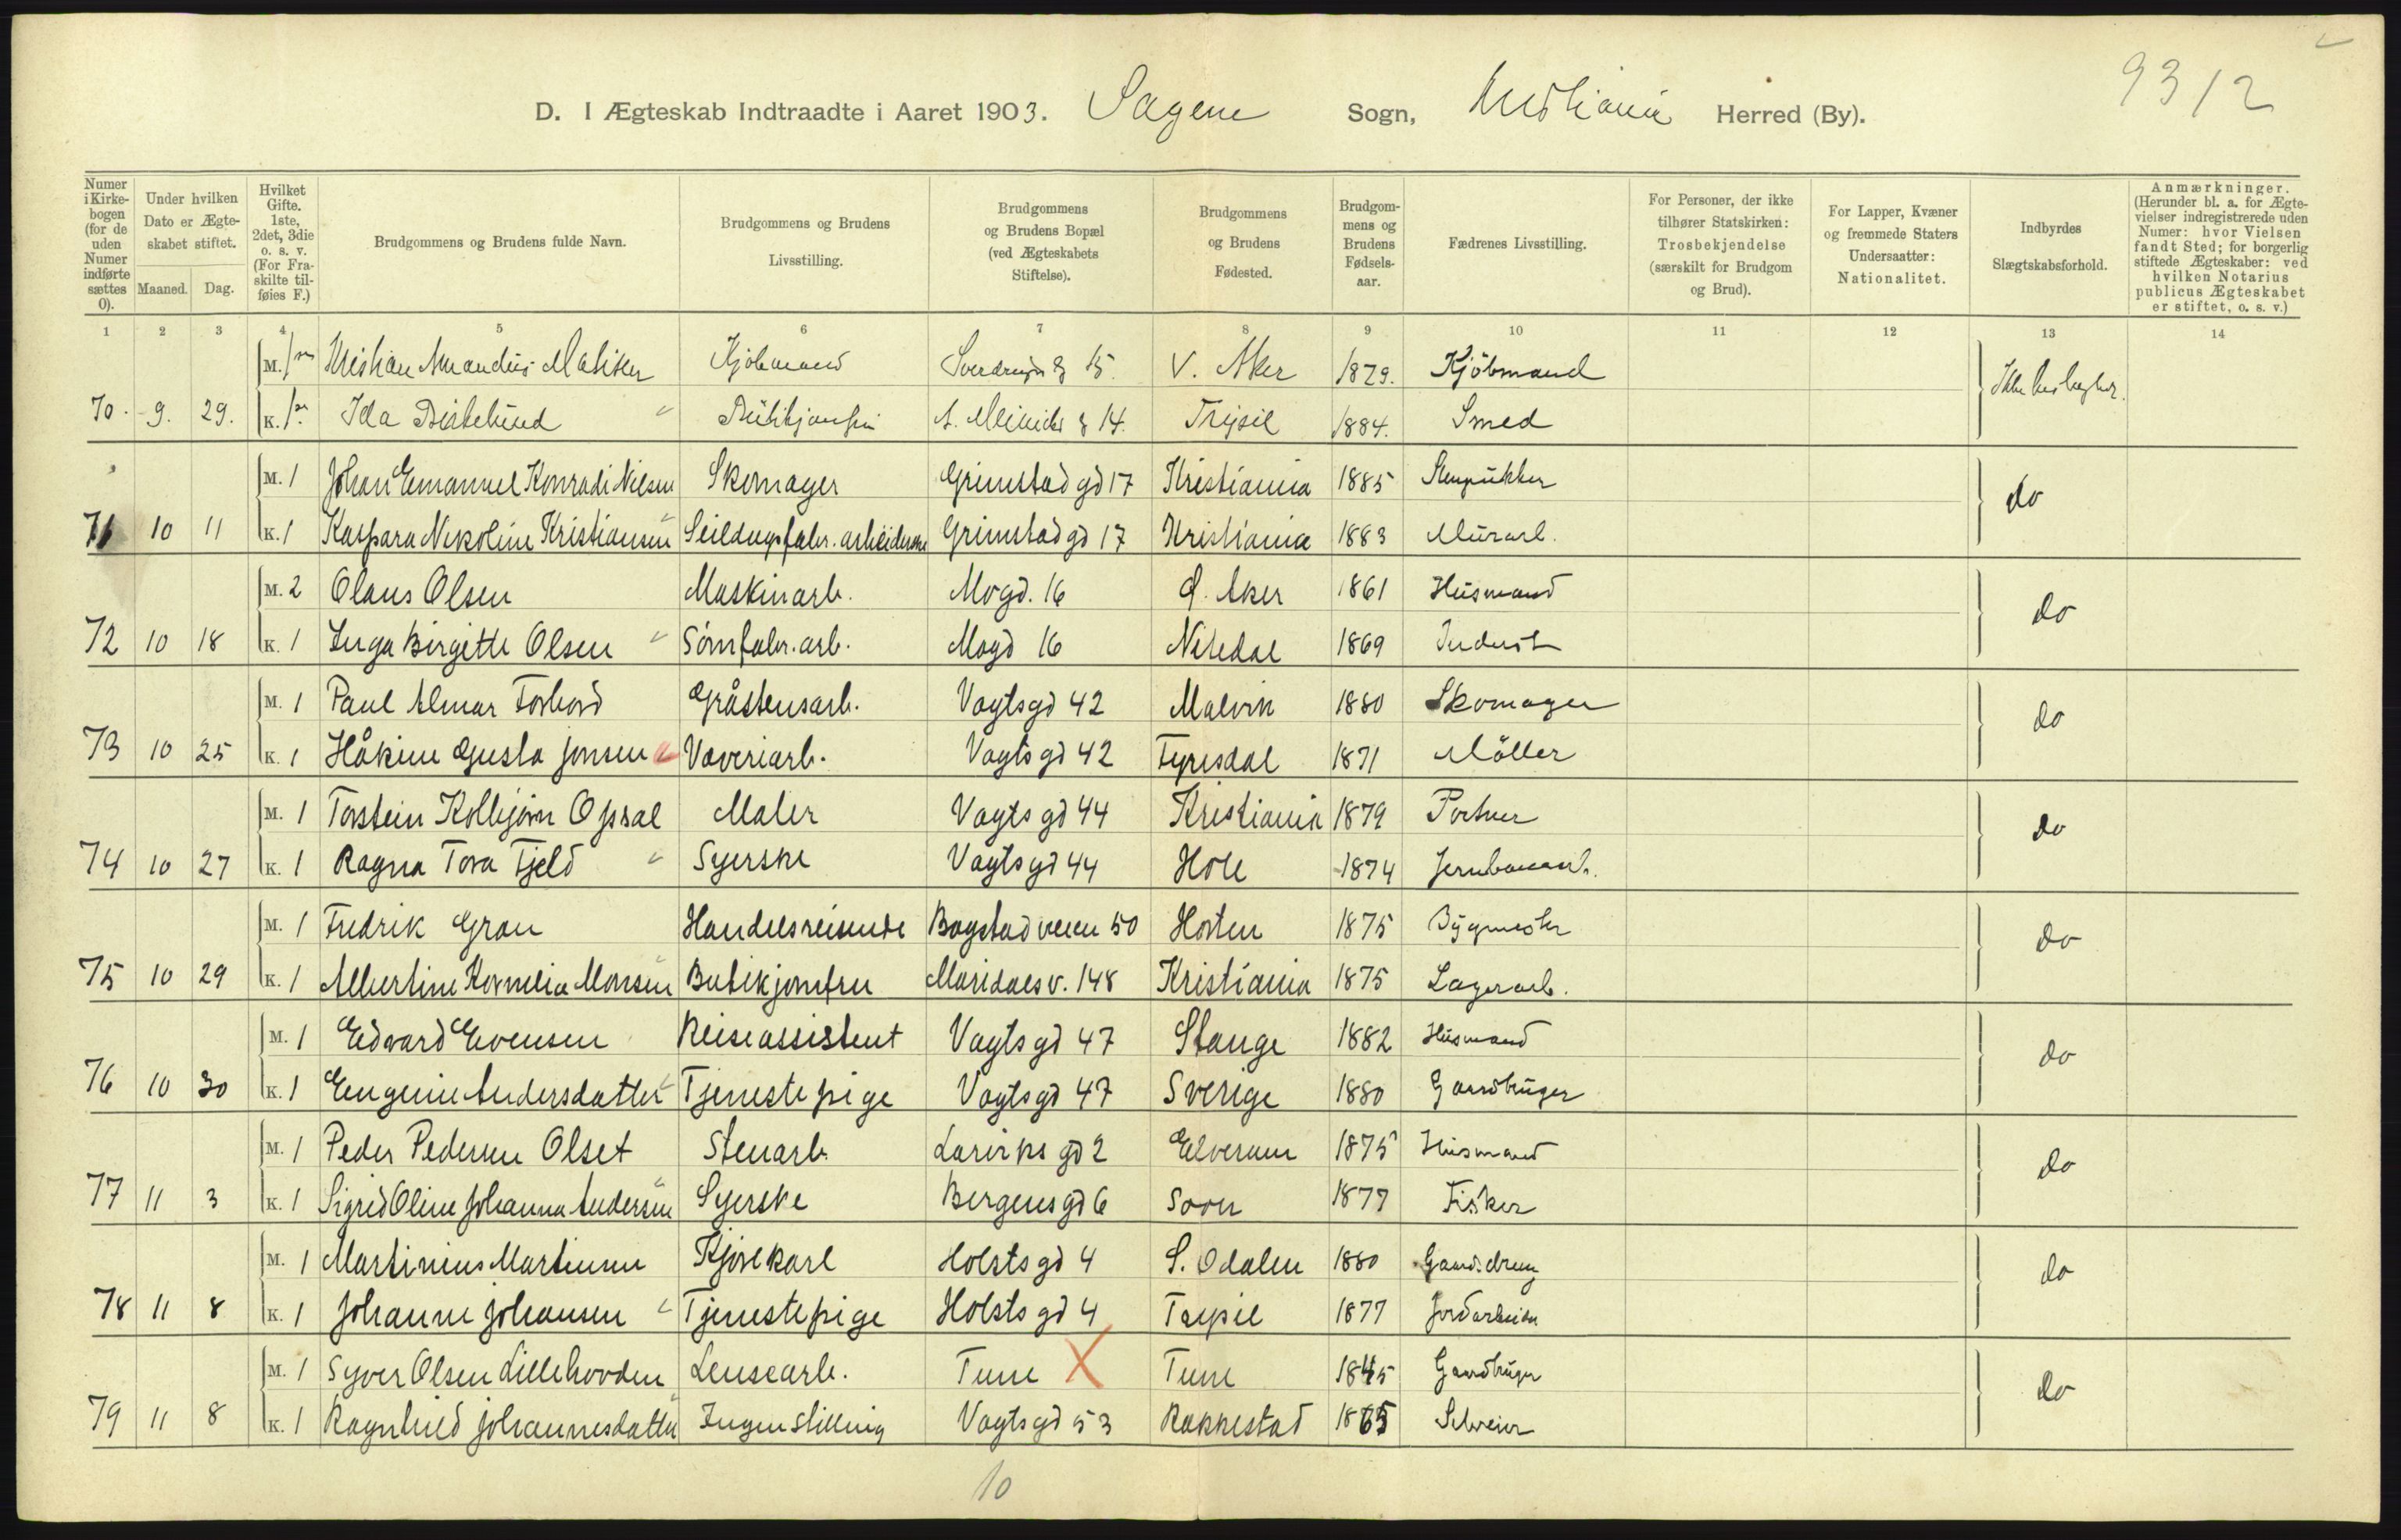 93 12
D. I Ægteskab Indtraadte i Aaret 1903. Sagene Sogn, Kristiania Herred (By).
Numer i Kirkebogen (for de uden Numer indførte sættes 0).
Under hvilken Dato er Ægteskabet stiftet. Maaned. Dag.
Hvilket Gifte. 1ste, 2det, 3die o. s. v. (For Fraskilte tilføies F.)
Brudgommens og Brudens fulde Navn.
Brudgommens og Brudens Livsstilling.
Brudgommens og Brudens Bopæl (ved Ægteskabets Stiftelse).
Brudgommens og Brudens Fødested.
Brudgommens og Brudens Fødselsaar.
Fædrenes Livsstilling.
For Personer, der ikke tilhører Statskirken: Trosbekjendelse (særskilt for Brudgom og Brud).
For Lapper, Kvæner og fremmede Staters Undersaatter: Nationalitet.
Indbyrdes Slægtskabsforhold.
Anmærkninger. (Herunder bl. a. for Ægtevielser indregistrerede uden Numer: hvor Vielsen fandt Sted; for borgerlig stiftede Ægteskaber: ved hvilken Notarius publicus Ægteskabet er stiftet, o. s. v.)
1 2 3 4 5 6 7 8 9 10 11 12 13 14
M. Kristian Amandus Matisen Kjöbmand 15. V. Aker 1879. Kjöbmand
70. 9. 29. K. Ida Trysil 1884. Smed
M. 1 Johan Emanuel Konradi Nilsen Skomager Grimstad gd 17 Kristiania 1885 Stenpukker do
71 10 11 K. 1 Kaspara Nikoline Kristiansen Seildugsfabr. arbeiderske Grimstad gd 17 Kristiania 1883 Murarb.
M. 2 Olaus Olsen Maskinarb. Mogd. 16 Ø. Aker 1861 Husmand do
72 10 18 K. 1 Inga Birgitte Olsen Sömfabr. arb. Mogd 16 Nitedal 1869 Inderst
M. 1 Paul Almar Forbord Gråstensarb. Vogtsgd 42 Malvik 1880 Skomager do
73 10 25 K. 1 Håkine Gusta Jonsen Væveriarb. Vogtsgd 42 Fyresdal 1871 Möller
M. 1 Torstein Kolbjörn Opsal Maler Vogtsgd 44 Kristiania 1879 Portner do
74 10 27 K. 1 Ragna Tora Fjeld Syerske Vogtsgd 44 Hole 1874 Jernbanearb.
M. 1 Fredrik Gran Handelsreisende Bogstadveien 50 Horten 1875 Bygmester do
75 10 29 K. 1 Albertine Kornelia Monsen Butikjomfru Maridalsv. 148 Kristiania 1875 Lagerarb.
M. 1 Edvard Evensen Reiseassistent Vogtsgd 47 Stange 1882 Husmand do
76 10 30 K. 1 Eugenie Andersdatter Tjenestepige Vogtsgd 47 Sverige 1880 Gaardbruger
M. 1 Peder Pedersen Olset Stenarb. Larviks gd 2 Elverum 1875 Husmand do
77 11 3 K. 1 Sigrid Oline Johanna Andersen Syerske Bergensgd 6 Soon 1877 Fisker
M. 1 Martinius Martinsen Kjörekarl Holsts gd 4 S. Odalen 1880 do
78 11 8 K. 1 Johanne Johansen Tjenestepige Holsts gd 4 1877 Jordarbeider
M. 1 Syver Olsen Lillehovden Lensearb. Tune X Tune 1845 Gaardbruger do
79 11 8 K. 1 Ragnhild Johannesdatter Ingen stilling Vogtsgd 53 Rakkestad 1865
10